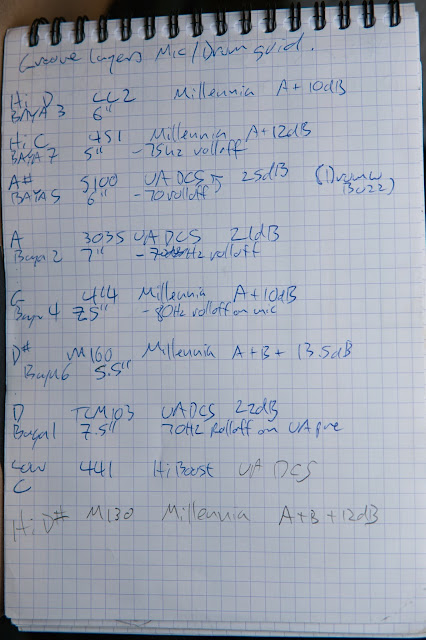 Groove Layers Mic/Drum guid.
Hi D CC2 Millennia A+10dB
BAYA 3 6"
Hi C 451 Millennia A+12dB
BAYA 7 5" -75Hz rolloff
A# 5100 UA DCS 25dB (Drum w
BAYA 5 6" -70 rolloff Buzz)
A 3035 UA DCS 21dB
Baya 2 7" - Hz rolloff
G 414 Millennia A+10dB
Baya 4 7.5" -80Hz rolloff on mic
D# M160 Millennia A+B+13.5dB
Baya 6 5.5"
D TLM103 UA DCS 22dB
Baya 1 7.5" 70Hz Rolloff on UA pre
Low 441 Hi Boost UA DCS
C
Hi D# M130 Millennia A+B+12dB